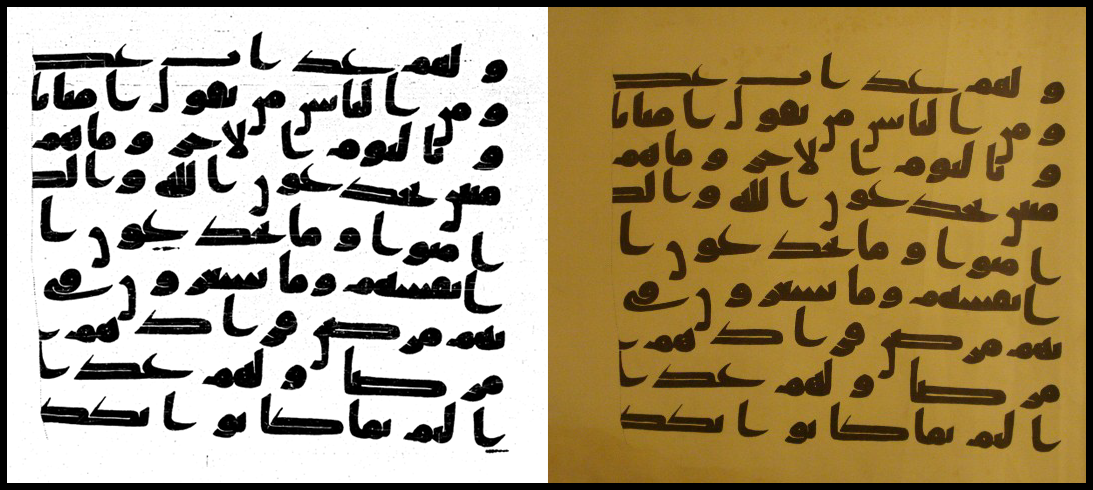 و لهم عذاب عظ
و من الناس من يقول امنا با
و باليوم الاخر و ما هم
منين يخدعون الله و الذ
امنوا و ما يخدعون ا
انفسهم و ما يشعرون في
بهم مرض فزادهم ا
مرضا و لهم عذا
اليم بما كانوا يكذ
و لهم عذاب عظ
و من الناس من يقول امنا با
و باليوم الاخر و ما هم
منين يخدعون الله و الذ
امنوا و ما يخدعون ا
انفسهم و ما يشعرون في
بهم مرض فزادهم ا
مرضا و لهم عذا
اليم بما كانوا يكذ